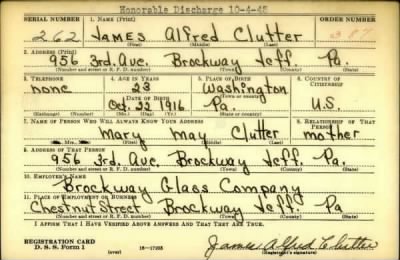 Honorable Discharge 10-4-45
SERIAL NUMBER 1. NAME (Print) ORDER NUMBER
262 JAMES Alfred Clutter 387
(First) (Middle) (Last)
2. ADDRESS (Print)
956 3rd. Ave. Brockway Jeff. Pa.
(Number and street or R. F. D. number) (Town) (County) (State)
3. TELEPHONE 4. AGE IN YEARS 5. PLACE OF BIRTH 6. COUNTRY OF CITIZENSHIP
none 23 Washington
DATE OF BIRTH (Town or county)
Oct. 22 1916 Pa. U.S.
(Exchange) (Number) (Mo.) (Day) (Yr.) (State or country)
7. NAME OF PERSON WHO WILL ALWAYS KNOW YOUR ADDRESS 8. RELATIONSHIP OF THAT PERSON
Mary May Clutter mother
(Mr., Mrs., Miss) (First) (Middle) (Last)
9. ADDRESS OF THAT PERSON
956 3rd. Ave. Brockway Jeff. Pa.
(Number and street or R. F. D. number) (Town) (County) (State)
10. EMPLOYER'S NAME
Brockway Glass Company
11. PLACE OF EMPLOYMENT OR BUSINESS
Chestnut Street Brockway Jeff. Pa
(Number and street or R. F. D. number) (Town) (County) (State)
I AFFIRM THAT I HAVE VERIFIED ABOVE ANSWERS AND THAT THEY ARE TRUE.
REGISTRATION CARD
D. S. S. Form 1 (over) 16-17105 James Alfred Clutter
(Registrant's signature)